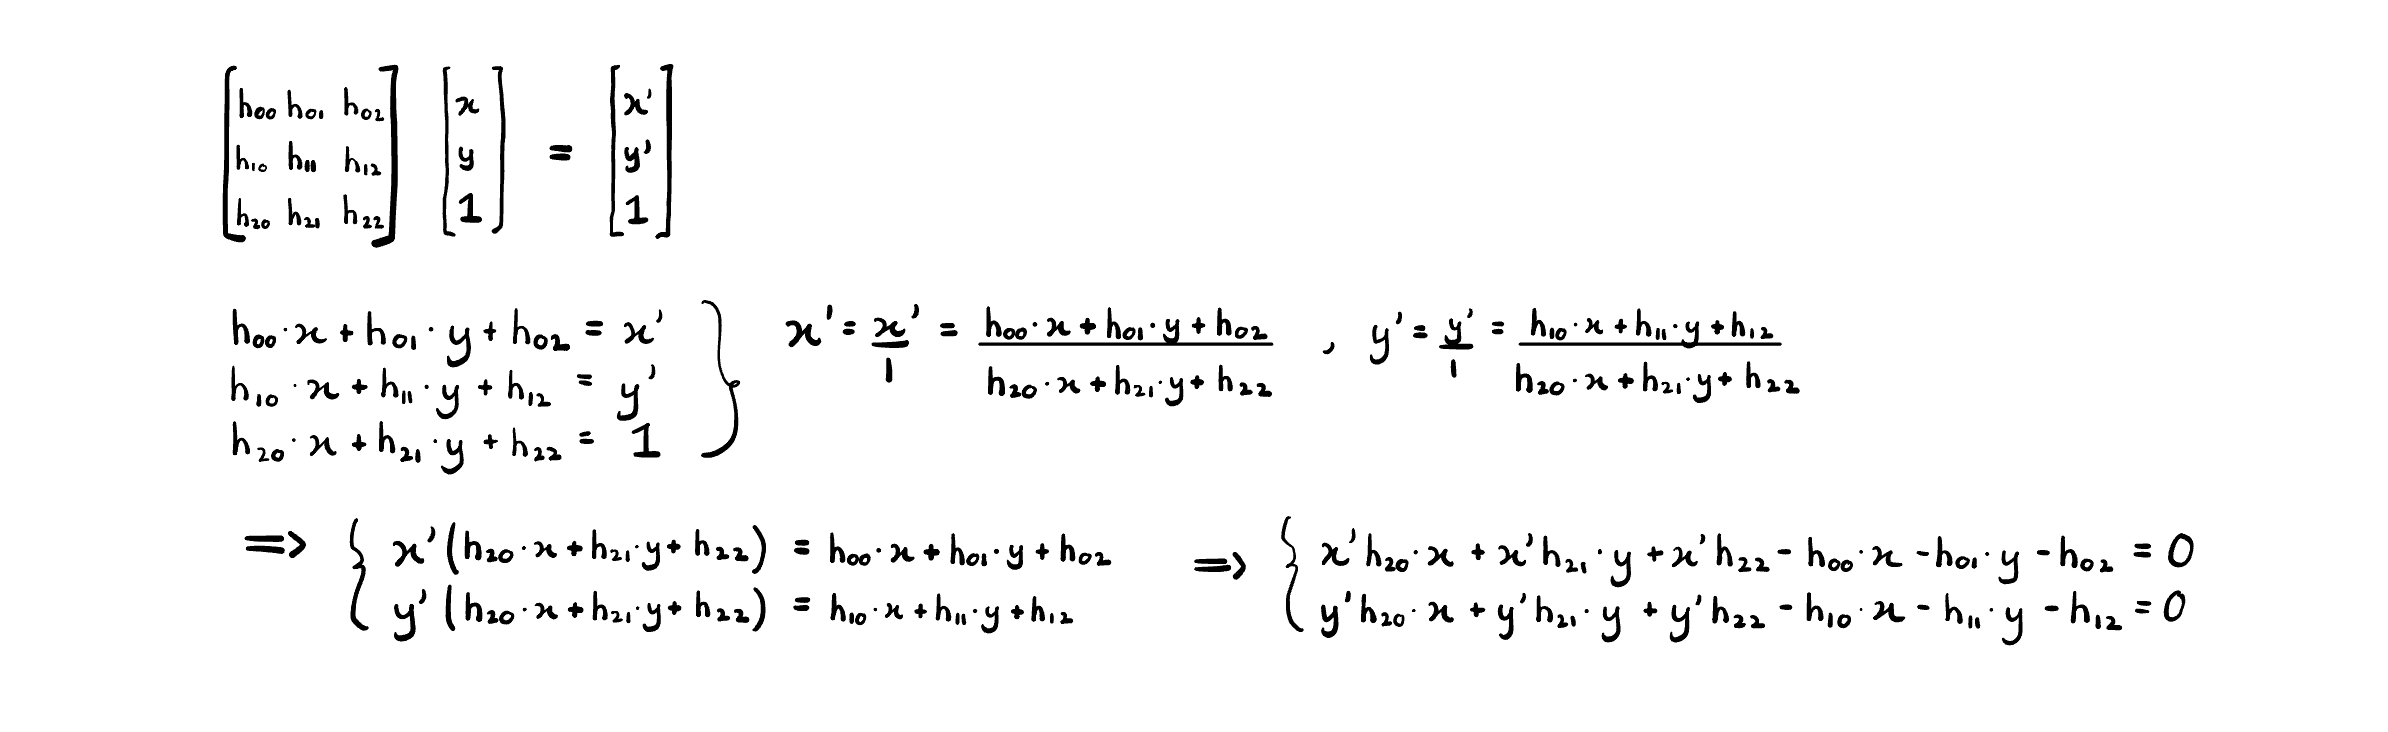 [h₀₀ h₀₁ h₀₂] [x] [x']
[h₁₀ h₁₁ h₁₂] [y] = [y']
[h₂₀ h₂₁ h₂₂] [1] [1]
h₀₀·x + h₀₁·y + h₀₂ = x'
h₁₀·x + h₁₁·y + h₁₂ = y'
h₂₀·x + h₂₁·y + h₂₂ = 1
} x' = x'/1 = (h₀₀·x + h₀₁·y + h₀₂)/(h₂₀·x + h₂₁·y + h₂₂) , y' = y'/1 = (h₁₀·x + h₁₁·y + h₁₂)/(h₂₀·x + h₂₁·y + h₂₂)
=> { x'(h₂₀·x + h₂₁·y + h₂₂) = h₀₀·x + h₀₁·y + h₀₂
y'(h₂₀·x + h₂₁·y + h₂₂) = h₁₀·x + h₁₁·y + h₁₂
=> { x'h₂₀·x + x'h₂₁·y + x'h₂₂ - h₀₀·x - h₀₁·y - h₀₂ = 0
y'h₂₀·x + y'h₂₁·y + y'h₂₂ - h₁₀·x - h₁₁·y - h₁₂ = 0